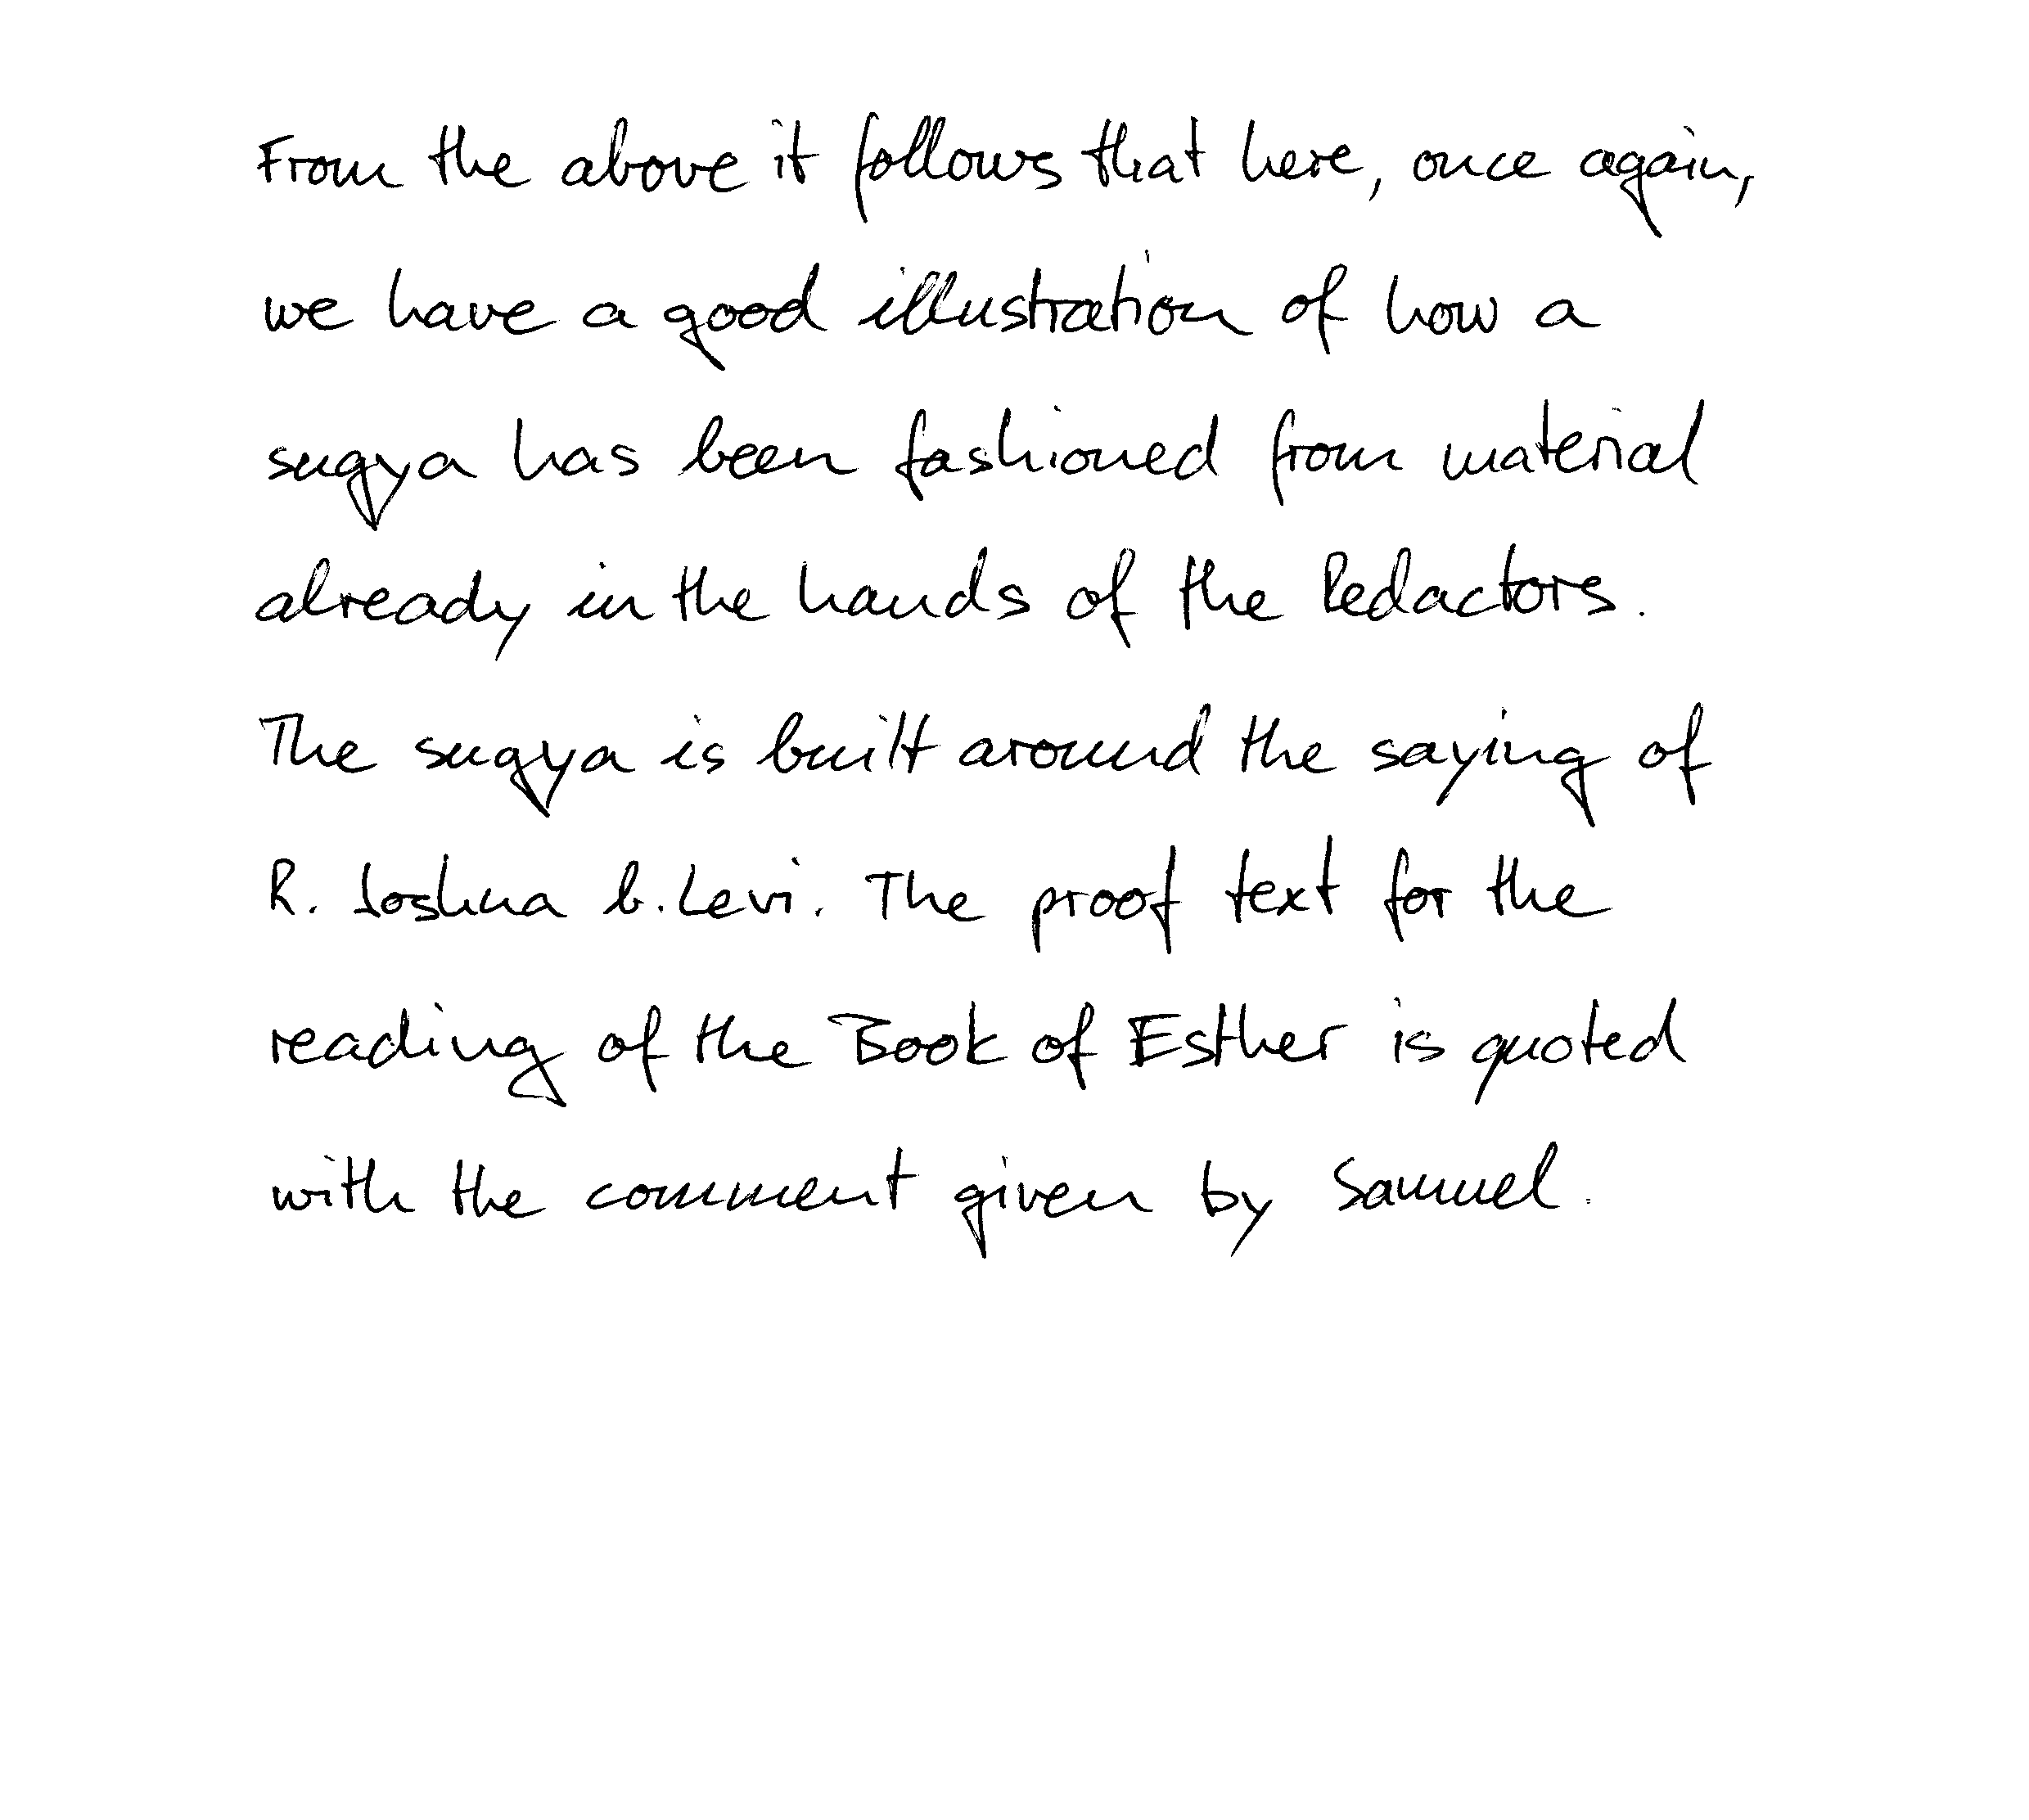 From the above it follows that here, once again,
we have a good illustration of how a
sugya has been fashioned from material
already in the hands of the Redactors.
The sugya is built around the saying of
R. Joshua b. Levi. The proof text for the
reading of the Book of Esther is quoted
with the comment given by Samuel.